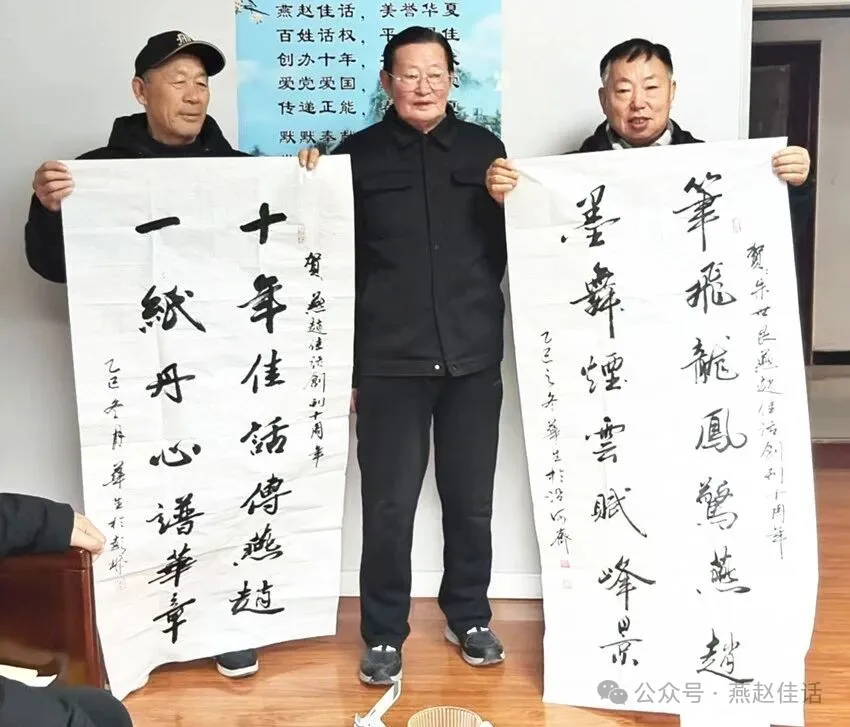 燕赵佳话，美誉华夏
百姓话权，平 佳
创办十年，
爱党爱国，
传递正能，
默默奉
贺燕趙佳话創刊十周年
十年佳話傳燕趙
一紙丹心譜華章
乙巳冬月華生於
贺朱世良燕趙佳话创刊十周年
筆飛龍鳳驚燕趙
墨舞煙雲賦峰景
乙巳之冬華生於 河齋
公众号·燕赵佳话